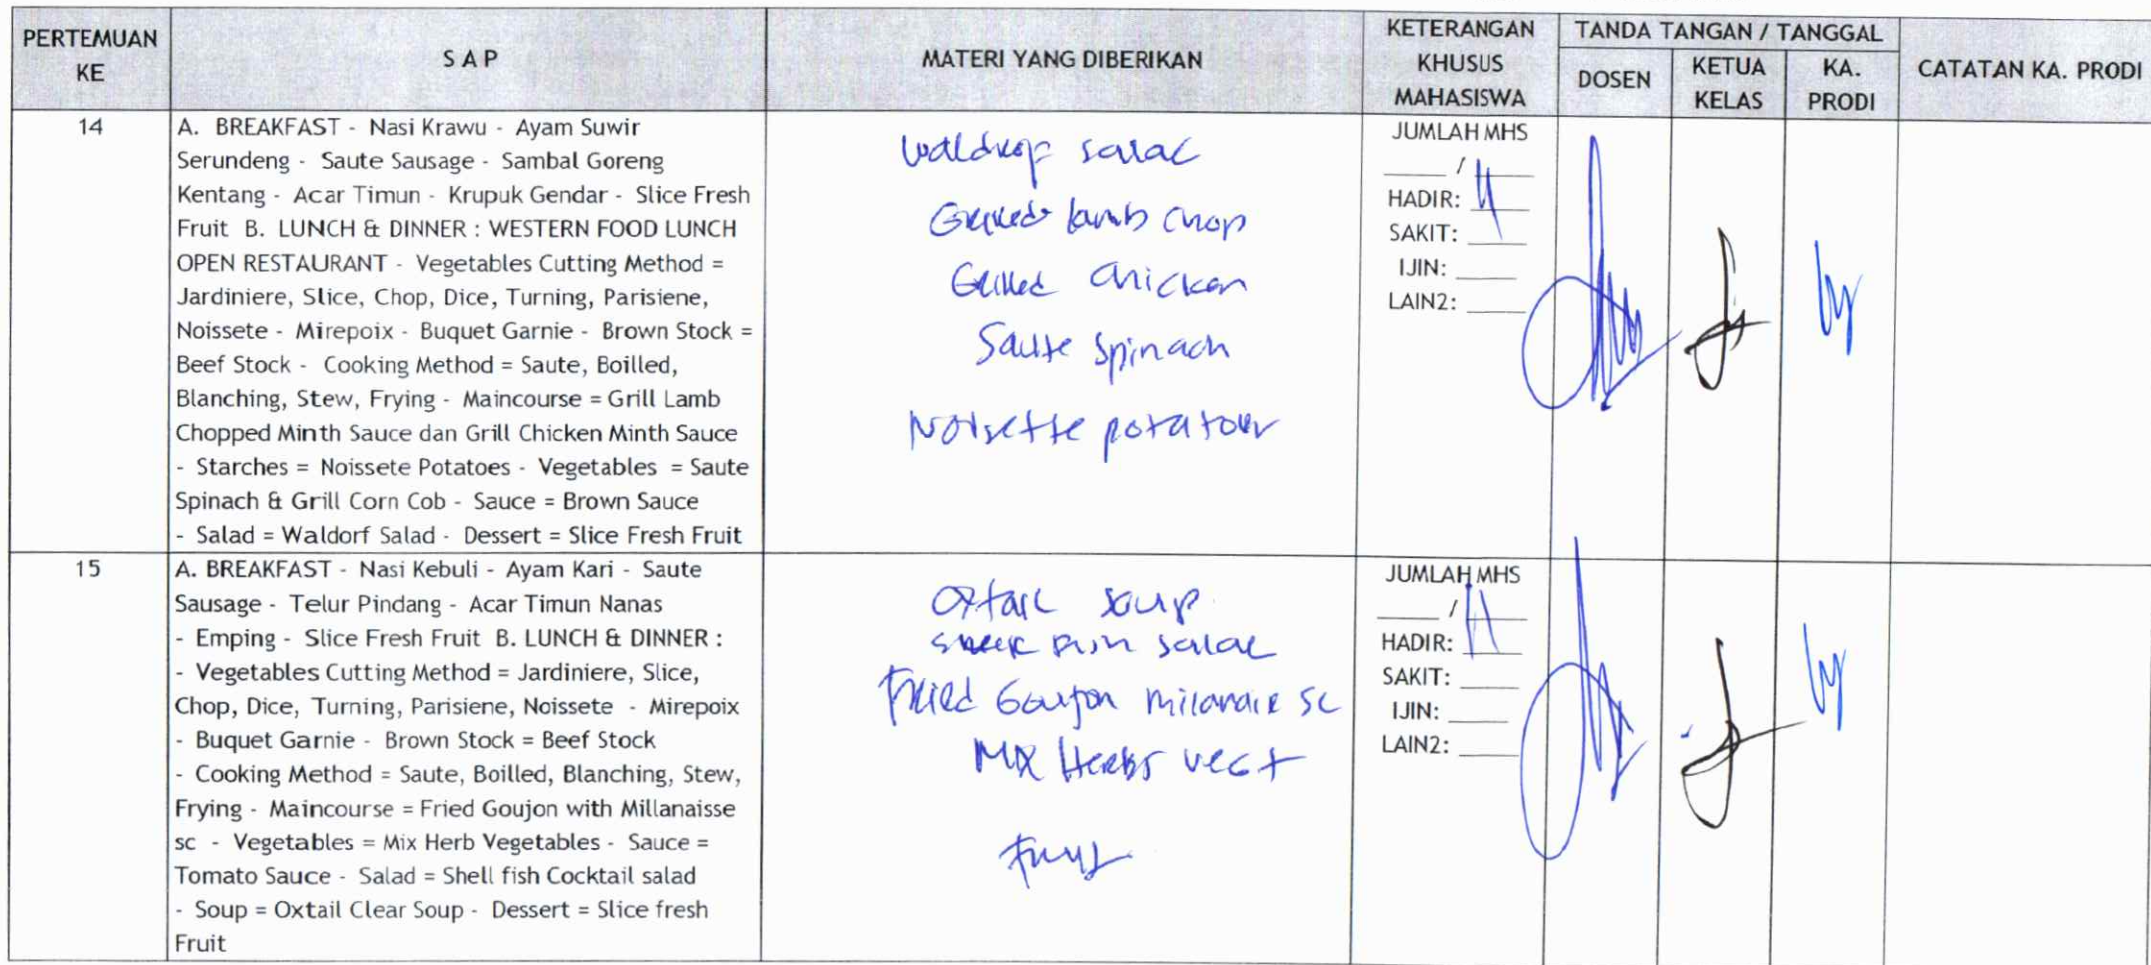 PERTEMUAN KE
S A P
MATERI YANG DIBERIKAN
KETERANGAN KHUSUS MAHASISWA
TANDA TANGAN / TANGGAL
DOSEN
KETUA KELAS
KA. PRODI
CATATAN KA. PRODI
14
A. BREAKFAST - Nasi Krawu - Ayam Suwir
Serundeng - Saute Sausage - Sambal Goreng
Kentang - Acar Timun - Krupuk Gendar - Slice Fresh
Fruit B. LUNCH & DINNER : WESTERN FOOD LUNCH
OPEN RESTAURANT - Vegetables Cutting Method =
Jardiniere, Slice, Chop, Dice, Turning, Parisiene,
Noissete - Mirepoix - Buquet Garnie - Brown Stock =
Beef Stock - Cooking Method = Saute, Boilled,
Blanching, Stew, Frying - Maincourse = Grill Lamb
Chopped Minth Sauce dan Grill Chicken Minth Sauce
- Starches = Noissete Potatoes - Vegetables = Saute
Spinach & Grill Corn Cob - Sauce = Brown Sauce
- Salad = Waldorf Salad - Dessert = Slice Fresh Fruit
Grilled lamb chop
Grilled chicken
Saute spinach
Noisette
JUMLAH MHS
/
HADIR:
SAKIT:
IJIN:
LAIN2:
15
A. BREAKFAST - Nasi Kebuli - Ayam Kari - Saute
Sausage - Telur Pindang - Acar Timun Nanas
- Emping - Slice Fresh Fruit B. LUNCH & DINNER :
- Vegetables Cutting Method = Jardiniere, Slice,
Chop, Dice, Turning, Parisiene, Noissete - Mirepoix
- Buquet Garnie - Brown Stock = Beef Stock
- Cooking Method = Saute, Boilled, Blanching, Stew,
Frying - Maincourse = Fried Goujon with Millanaisse
sc - Vegetables = Mix Herb Vegetables - Sauce =
Tomato Sauce - Salad = Shell fish Cocktail salad
- Soup = Oxtail Clear Soup - Dessert = Slice fresh
Fruit
Oxtail soup
Fried Goujon sc
Mix Herbs
JUMLAH MHS
/
HADIR:
SAKIT:
IJIN:
LAIN2: